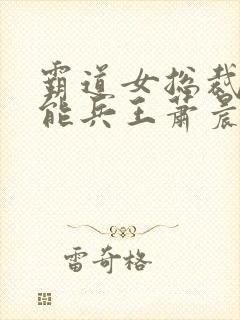 霸道女总裁
能兵王萧晨
雷奇格